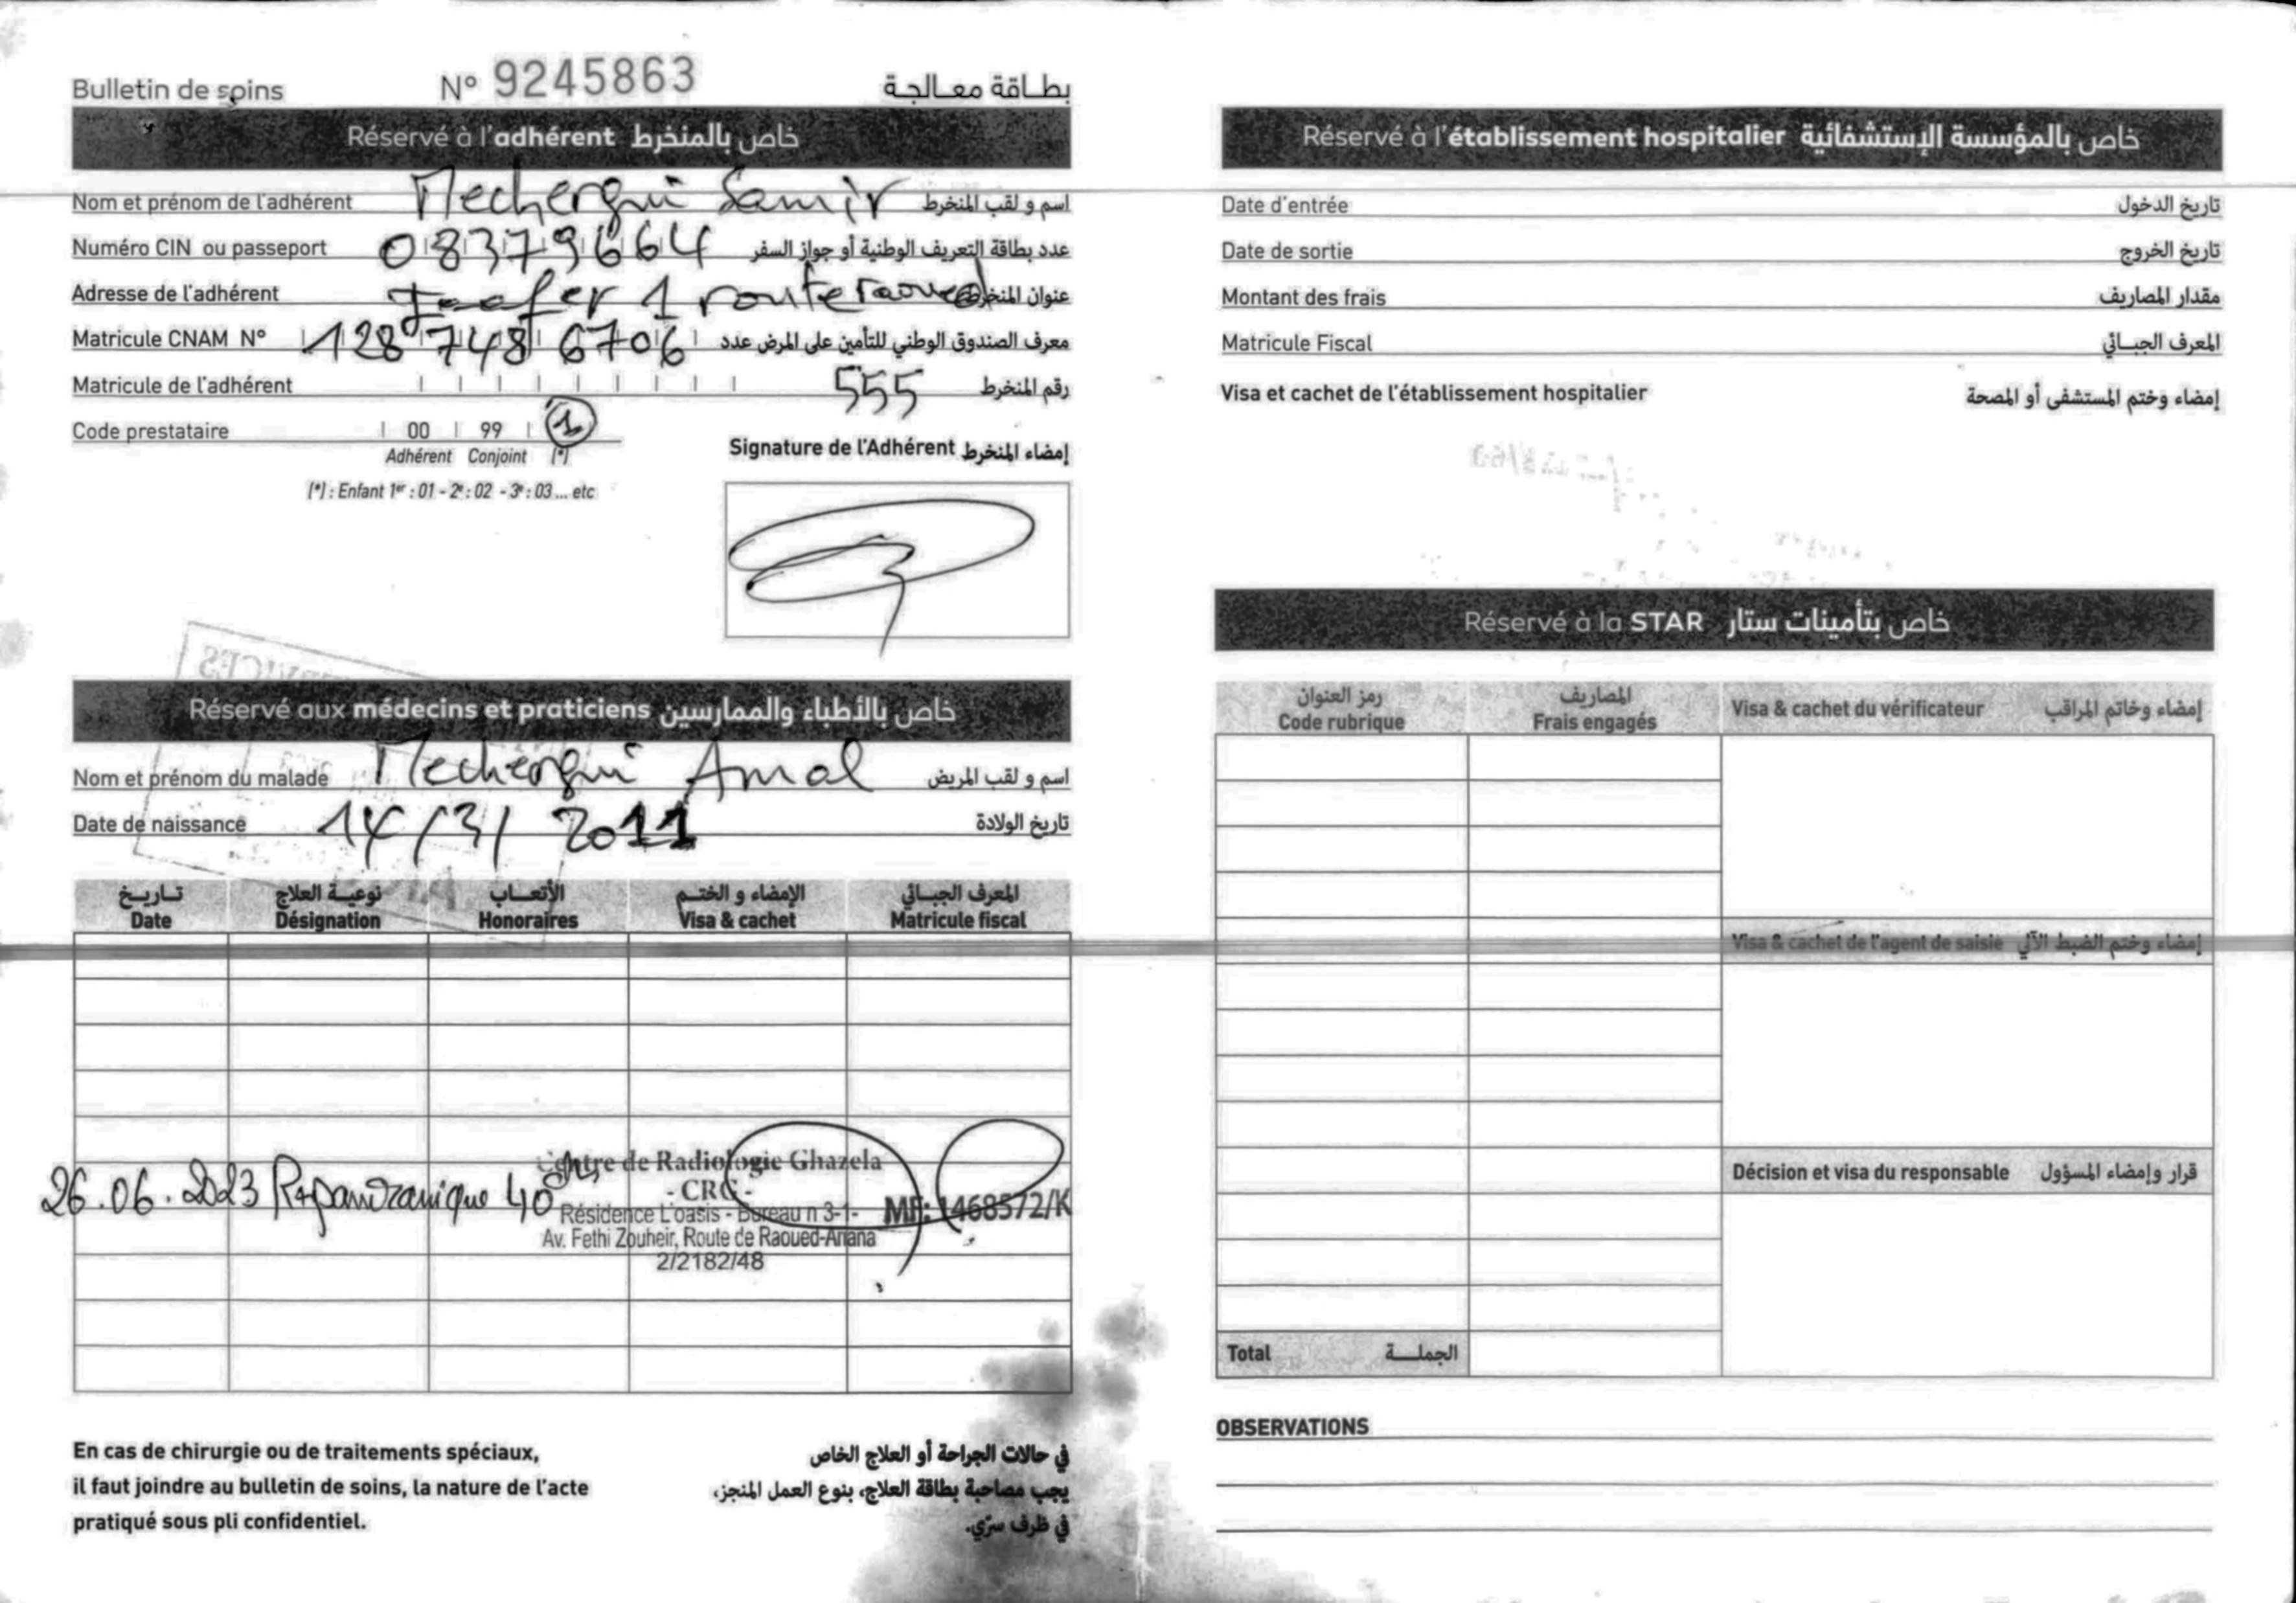 Bulletin de soins N° 9245863 بطاقة معالجة
Réservé à l'adhérent خاص بالمنخرط
Nom et prénom de l'adhérent Mechergui Samir اسم و لقب المنخرط
Numéro CIN ou passeport 08379664 عدد بطاقة التعريف الوطنية أو جواز السفر
Adresse de l'adhérent Jaafer 1 route raoued عنوان المنخرط
Matricule CNAM N° 128 748 6706 معرف الصندوق الوطني للتأمين على المرض عدد
Matricule de l'adhérent 555 رقم المنخرط
Code prestataire 00 99 1
Adhérent Conjoint (*)
(*) : Enfant 1er : 01 - 2e : 02 - 3e : 03 ... etc
Signature de l'Adhérent إمضاء المنخرط
Réservé aux médecins et praticiens خاص بالأطباء والممارسين
Nom et prénom du malade Mechergui Amal اسم و لقب المريض
Date de naissance 14/3/2011 تاريخ الولادة
تاريخ نوعية العلاج الأتعاب الإمضاء و الختم المعرف الجبائي
Date Désignation Honoraires Visa & cachet Matricule fiscal
26.06.2023 Rx panoramique 40
Centre de Radiologie Ghazela
- CRG -
Résidence L'oasis - Bureau n 3-1-
Av. Fethi Zouheir, Route de Raoued-Ariana
2/2182/48
MF: 1468572/K
En cas de chirurgie ou de traitements spéciaux,
il faut joindre au bulletin de soins, la nature de l'acte
pratiqué sous pli confidentiel.
في حالات الجراحة أو العلاج الخاص
يجب مصاحبة بطاقة العلاج، بنوع العمل المنجز،
في ظرف سرّي.
Réservé à l'établissement hospitalier خاص بالمؤسسة الإستشفائية
Date d'entrée تاريخ الدخول
Date de sortie تاريخ الخروج
Montant des frais مقدار المصاريف
Matricule Fiscal المعرف الجبائي
Visa et cachet de l'établissement hospitalier إمضاء وختم المستشفى أو المصحة
Réservé à la STAR خاص بتأمينات ستار
رمز العنوان المصاريف
Code rubrique Frais engagés Visa & cachet du vérificateur إمضاء وخاتم المراقب
Visa & cachet de l'agent de saisie إمضاء وختم الضبط الآلي
Décision et visa du responsable قرار وإمضاء المسؤول
Total الجملة
OBSERVATIONS